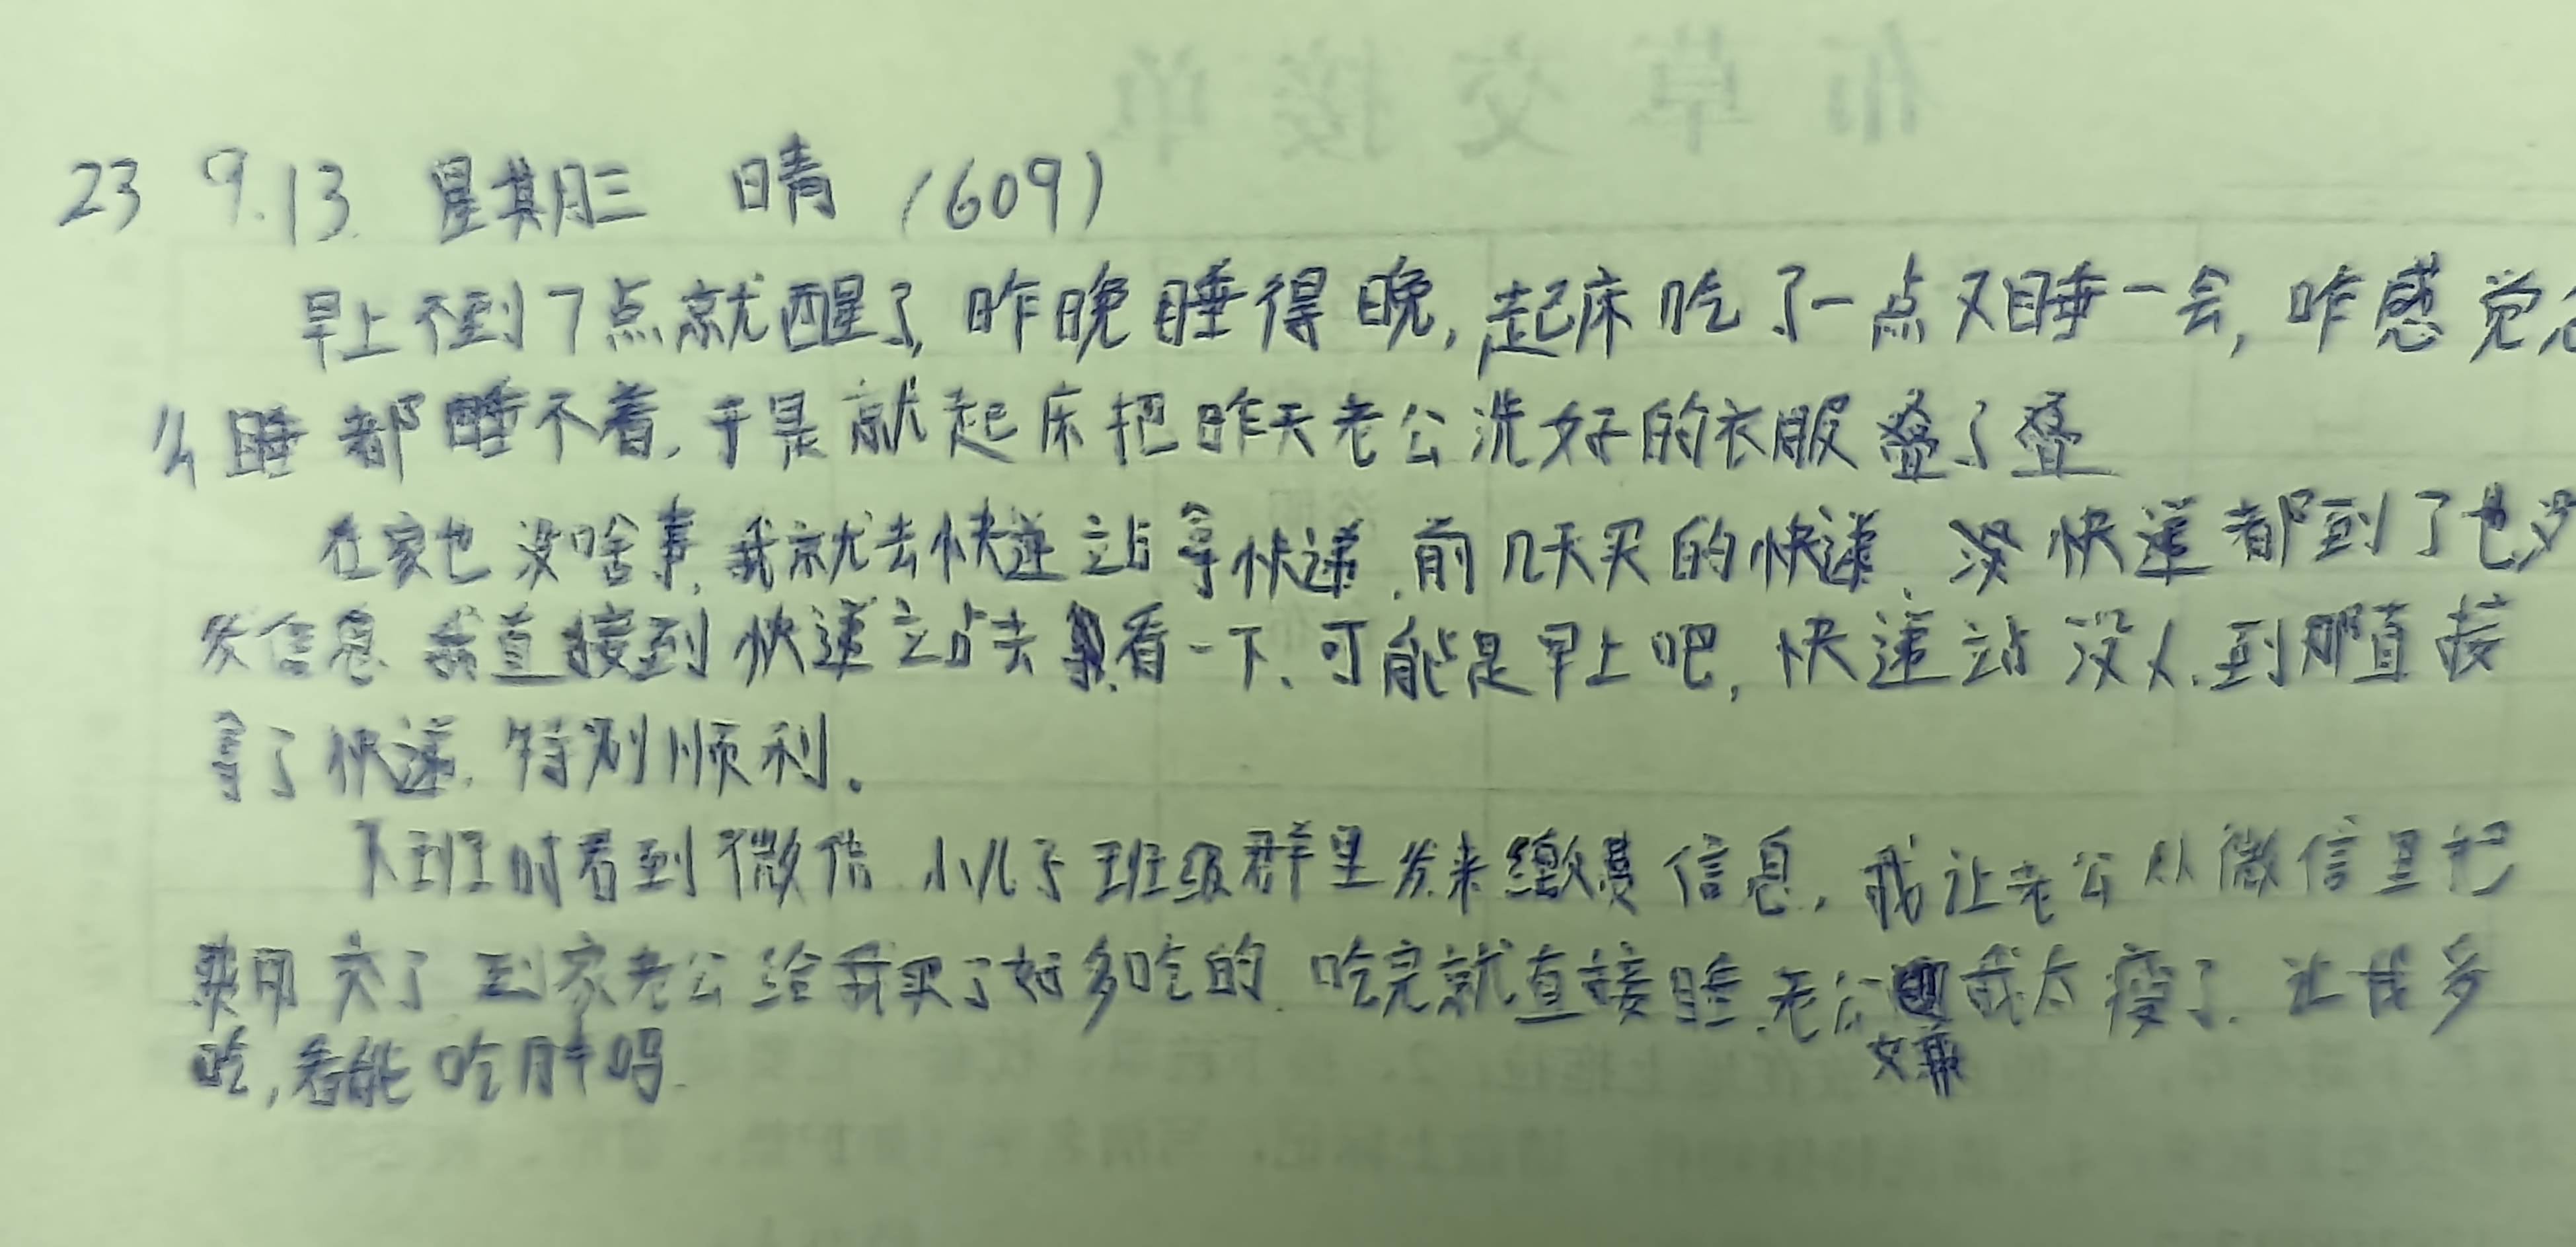 布草交接单
23 9.13. 星期三 晴 (609)
早上不到7点就醒了,昨晚睡得晚,起床吃了一点又睡一会,咋感觉怎
么睡都睡不着,于是就起床把昨天老公洗好的衣服叠了叠
在家也没啥事,我就去快递站拿快递,前几天买的快递,快递都到了也没
发信息 我直接到快递站去看一下,可能是早上吧,快递站没人,到那直接
拿了快递,特别顺利。
下班时看到微信 小儿子班级群里发来缴费信息,我让老公从微信里把
费用交了 到家老公给我买了好多吃的,吃完就直接睡,老公嫌我太瘦了,让我多
吃,看能吃胖吗.